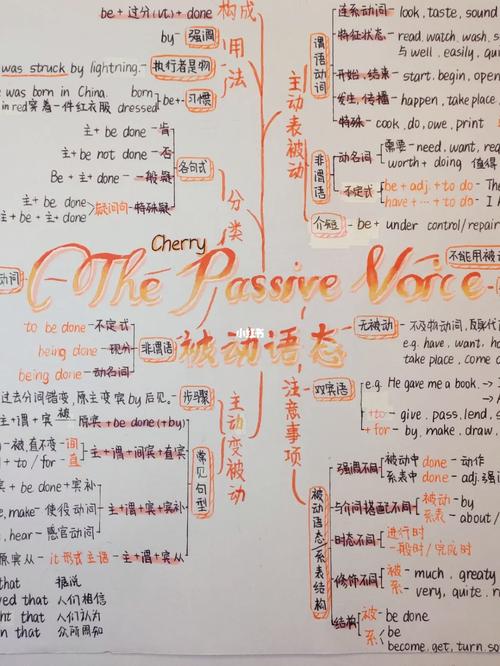 be + 过分(vt.) + done
构成
by - 强调
用法
was struck by lightning. - 执行者是物
was born in China. born
in red 穿着一件红衣服 dressed
be + 习惯
主 + be done - 肯
主 + be not done - 否
Be + 主 + done - 一般疑
主 + be done
+ be + 主 + done
疑问词 - 特殊疑
各句式
分类
主动表被动
谓语动词
连系动词 - look, taste, sound
特征状态 - read, wash
与 well, easily
开始、结束 - start, begin, open
发生、传播 - happen, take place
特殊 - cook, do, owe, print
非谓语
动名词
需要 - need, want
worth + doing 值得
不定式
be + adj. + to do - Th
have + ... + to do - I
介短 - be + under control/repair
不能用被动
Cherry
The Passive Voice
小红书
被动语态
动词
to be done - 不定式
being done - 现分
being done - 动名词
非谓语
无被动 - 不及物动词
e.g. have, want, ho
take place, come
双宾语
e.g. He gave me a book. →
+ to - give, pass, lend, s
+ for - by, make, draw
注意事项
主动变被动
步骤
过去分词错变, 原主变宾 by 后见.
主 + 谓 + 宾 被 原宾 + be done (+by)
被, 直不变 - 间
+ to / for - 直
主 + 谓 + 间宾 + 直宾
常见句型
宾 + be done + 宾补
make - 使役动词
hear - 感官动词
主 + 谓 + 宾 + 宾补
原宾从 - it 形式主语 - 主 + 谓 + 宾从
that 据说
ved that 人们相信
ght that 人们认为
n that 众所周知
被动语态/系表结构
强调不同
被动中 done - 动作
系表中 done - adj.
与介词搭配不同
被动 - by
系表 - about /
时态不同
进行时
一般时 / 完成时
修饰不同
被 - much, greaty
系 - very, quite
结构
被 - be done
系 be
become, get, turn